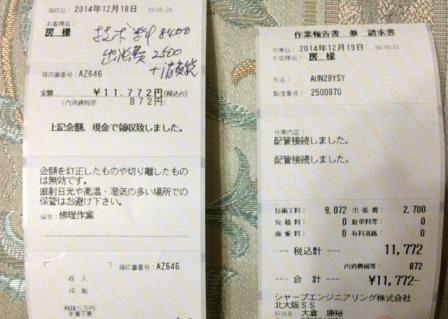 領収日: 2014年12月19日
お客様名:
房 様
技术料 8400
出张费 2500
+消费税
領収書番号: AZ646
金額 ¥11,772円(税込み)
(内消費税等 872円)
上記金額、現金で領収致しました。
金額を訂正したものや切り離したもの
は無効です。
直射日光や高温・湿気の多い場所での
保管はお避け下さい。
備考: 修理作業
領収書番号: AZ646
収入
印紙
作業報告書 兼 請求書
作業日: 2014年12月19日
お客様名:
房 様
形名: AUN28YSY
製造番号: 2500870
作業内容:
配管接続しました。
配管接続しました。
技術工料: 9,072 出張費: 2,700
見積料: 0 駐車料等: 0
廃棄料: 0 有料道路: 0
--- 税込計 --- 11,772
内消費税等: 872
--- 合計 --- ¥11,772-
シャープエンジニアリング株式会社
北大阪SS
担当者: 大倉 康裕